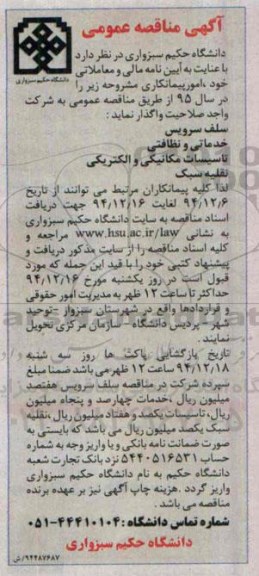 آگهی مناقصه عمومی
دانشگاه حکیم سبزواری
دانشگاه حکیم سبزواری در نظر دارد
با عنایت به آیین نامه مالی و معاملاتی
خود ،امورپیمانکاری مشروحه زیر را
در سال ۹۵ از طریق مناقصه عمومی به شرکت
واجد صلاحیت واگذار نماید :
سلف سرویس
خدماتی و نظافتی
تاسیسات مکانیکی و الکتریکی
نقلیه سبک
لذا کلیه پیمانکاران مرتبط می توانند از تاریخ
۹۴/۱۲/۶ لغایت ۹۴/۱۲/۱۶ جهت دریافت
اسناد مناقصه به سایت دانشگاه حکیم سبزواری
به نشانی www.hsu.ac.ir/law مراجعه و
کلیه اسناد مناقصه را از سایت مذکور دریافت و
پیشنهاد کتبی خود را با قید این جمله که مورد
قبول است در روز یکشنبه مورخ ۹۴/۱۲/۱۶
حداکثر تا ساعت ۱۲ ظهر به مدیریت امور حقوقی
و قراردادها واقع در شهرستان سبزوار -توحید
شهر- پردیس دانشگاه - سازمان مرکزی تحویل
نمایند.
تاریخ بازگشایی پاکت ها روز سه شنبه
۹۴/۱۲/۱۸ ساعت ۱۲ ظهر می باشد ضمنا مبلغ
سپرده شرکت در مناقصه سلف سرویس هفتصد
میلیون ریال ،خدمات چهارصد و پنجاه میلیون
ریال، تاسیسات یکصد و هفتاد میلیون ریال ،نقلیه
سبک یکصد میلیون ریال می باشد که بایستی به
صورت ضمانت نامه بانکی و یا واریز وجه به شماره
حساب ۵۴۴۰۵۱۶۵۳۱ نزد بانک تجارت شعبه
دانشگاه حکیم به نام دانشگاه حکیم سبزواری
واریز گردد .هزینه چاپ آگهی نیز بر عهده برنده
مناقصه می باشد .
شماره تماس دانشگاه :۴۴۴۱۰۱۰۴-۰۵۱
دانشگاه حکیم سبزواری
۹۴۴۸۷۶۸۷/ش